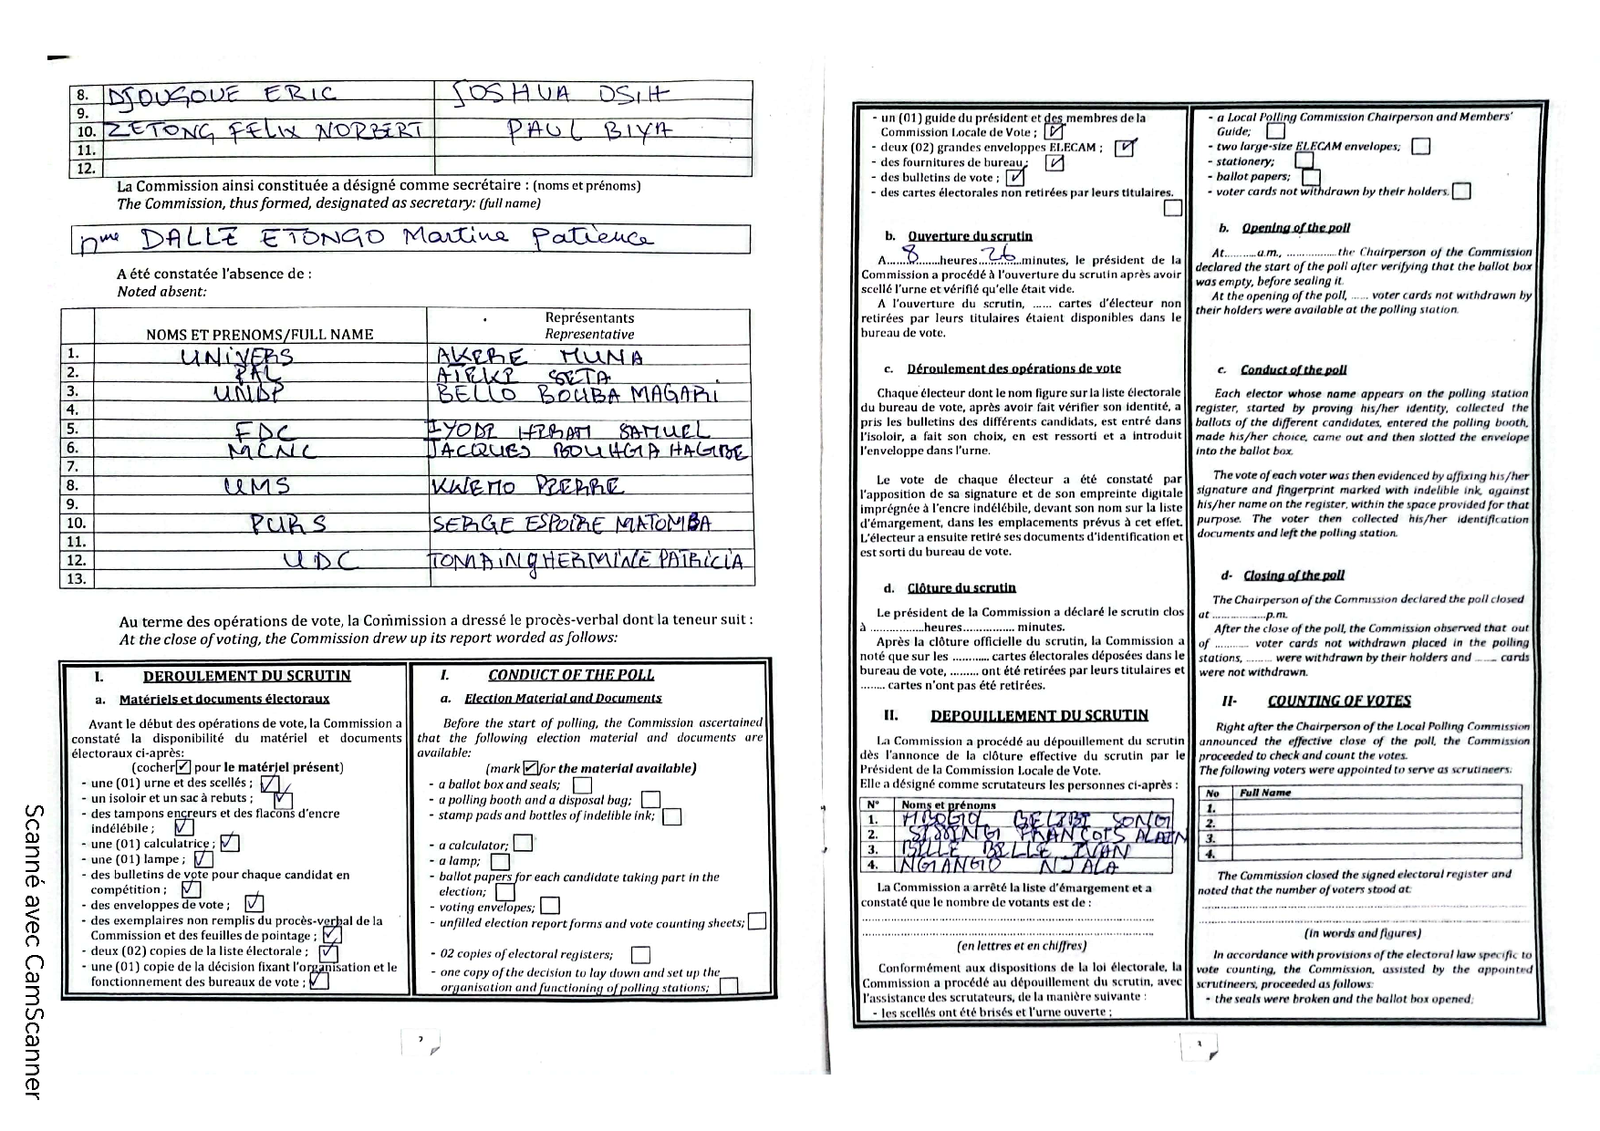 8. DJOUGOUE ERIC JOSHUA OSIH
9.
10. ZETONG FELIX NORBERT PAUL BIYA
11.
12.
La Commission ainsi constituée a désigné comme secrétaire : (noms et prénoms)
The Commission, thus formed, designated as secretary: (full name)
Mme DALLE ETONGO Martine Patience
A été constatée l'absence de :
Noted absent:
NOMS ET PRENOMS/FULL NAME
Représentants
Representative
1. UNIVERS AKERE MUNA
2. PAL ATEKI SETA
3. UNDP BELLO BOUBA MAGARI
4.
5. FDC IYODI HIRAM SAMUEL
6. MCNC JACQUES BOUHGIA HAGIBE
7.
8. UMS KWEMO PIERRE
9.
10. PURS SERGE ESPOIRE MATOMBA
11.
12. UDC TOMAINg HERMINE PATRICIA
13.
Au terme des opérations de vote, la Commission a dressé le procès-verbal dont la teneur suit :
At the close of voting, the Commission drew up its report worded as follows:
I. DEROULEMENT DU SCRUTIN
a. Matériels et documents électoraux
Avant le début des opérations de vote, la Commission a
constaté la disponibilité du matériel et documents
électoraux ci-après:
(cocher ☑ pour le matériel présent)
- une (01) urne et des scellés ; ☑
- un isoloir et un sac à rebuts ; ☑
- des tampons encreurs et des flacons d'encre
indélébile ; ☑
- une (01) calculatrice ; ☑
- une (01) lampe ; ☑
- des bulletins de vote pour chaque candidat en
compétition ; ☑
- des enveloppes de vote ; ☑
- des exemplaires non remplis du procès-verbal de la
Commission et des feuilles de pointage ; ☑
- deux (02) copies de la liste électorale ; ☑
- une (01) copie de la décision fixant l'organisation et le
fonctionnement des bureaux de vote ; ☑
I. CONDUCT OF THE POLL
a. Election Material and Documents
Before the start of polling, the Commission ascertained
that the following election material and documents are
available:
(mark ☑ for the material available)
- a ballot box and seals; ☐
- a polling booth and a disposal bag; ☐
- stamp pads and bottles of indelible ink; ☐
- a calculator; ☐
- a lamp; ☐
- ballot papers for each candidate taking part in the
election; ☐
- voting envelopes; ☐
- unfilled election report forms and vote counting sheets; ☐
- 02 copies of electoral registers; ☐
- one copy of the decision to lay down and set up the
organisation and functioning of polling stations; ☐
2
Scanné avec CamScanner
- un (01) guide du président et des membres de la
Commission Locale de Vote ; ☑
- deux (02) grandes enveloppes ELECAM ; ☑
- des fournitures de bureau; ☑
- des bulletins de vote ; ☑
- des cartes électorales non retirées par leurs titulaires.
☐
b. Ouverture du scrutin
A...8...heures...26...minutes, le président de la
Commission a procédé à l'ouverture du scrutin après avoir
scellé l'urne et vérifié qu'elle était vide.
A l'ouverture du scrutin, ...... cartes d'électeur non
retirées par leurs titulaires étaient disponibles dans le
bureau de vote.
c. Déroulement des opérations de vote
Chaque électeur dont le nom figure sur la liste électorale
du bureau de vote, après avoir fait vérifier son identité, a
pris les bulletins des différents candidats, est entré dans
l'isoloir, a fait son choix, en est ressorti et a introduit
l'enveloppe dans l'urne.
Le vote de chaque électeur a été constaté par
l'apposition de sa signature et de son empreinte digitale
imprégnée à l'encre indélébile, devant son nom sur la liste
d'émargement, dans les emplacements prévus à cet effet.
L'électeur a ensuite retiré ses documents d'identification et
est sorti du bureau de vote.
d. Clôture du scrutin
Le président de la Commission a déclaré le scrutin clos
à ................heures............... minutes.
Après la clôture officielle du scrutin, la Commission a
noté que sur les ........... cartes électorales déposées dans le
bureau de vote, ......... ont été retirées par leurs titulaires et
........ cartes n'ont pas été retirées.
II. DEPOUILLEMENT DU SCRUTIN
La Commission a procédé au dépouillement du scrutin
dès l'annonce de la clôture effective du scrutin par le
Président de la Commission Locale de Vote.
Elle a désigné comme scrutateurs les personnes ci-après :
N° Noms et prénoms
1. MBOGO BELIBI SONGI
2. SISSINGI FRANCOIS ALAIN
3. BILLE BELLE IVAN
4. NGIANGIO NJALA
La Commission a arrêté la liste d'émargement et a
constaté que le nombre de votants est de :
................................................
(en lettres et en chiffres)
Conformément aux dispositions de la loi électorale, la
Commission a procédé au dépouillement du scrutin, avec
l'assistance des scrutateurs, de la manière suivante :
- les scellés ont été brisés et l'urne ouverte ;
- a Local Polling Commission Chairperson and Members'
Guide; ☐
- two large-size ELECAM envelopes; ☐
- stationery; ☐
- ballot papers; ☐
- voter cards not withdrawn by their holders. ☐
b. Opening of the poll
At..........a.m., ..................the Chairperson of the Commission
declared the start of the poll after verifying that the ballot box
was empty, before sealing it.
At the opening of the poll, ...... voter cards not withdrawn by
their holders were available at the polling station.
c. Conduct of the poll
Each elector whose name appears on the polling station
register, started by proving his/her identity, collected the
ballots of the different candidates, entered the polling booth,
made his/her choice, came out and then slotted the envelope
into the ballot box.
The vote of each voter was then evidenced by affixing his/her
signature and fingerprint marked with indelible ink, against
his/her name on the register, within the space provided for that
purpose. The voter then collected his/her identification
documents and left the polling station.
d- Closing of the poll
The Chairperson of the Commission declared the poll closed
at ...................p.m.
After the close of the poll, the Commission observed that out
of ........... voter cards not withdrawn placed in the polling
stations, ........ were withdrawn by their holders and ....... cards
were not withdrawn.
II- COUNTING OF VOTES
Right after the Chairperson of the Local Polling Commission
announced the effective close of the poll, the Commission
proceeded to check and count the votes.
The following voters were appointed to serve as scrutineers:
No Full Name
1.
2.
3.
4.
The Commission closed the signed electoral register and
noted that the number of voters stood at:
................................................
................................................
(in words and figures)
In accordance with provisions of the electoral law specific to
vote counting, the Commission, assisted by the appointed
scrutineers, proceeded as follows:
- the seals were broken and the ballot box opened;
3